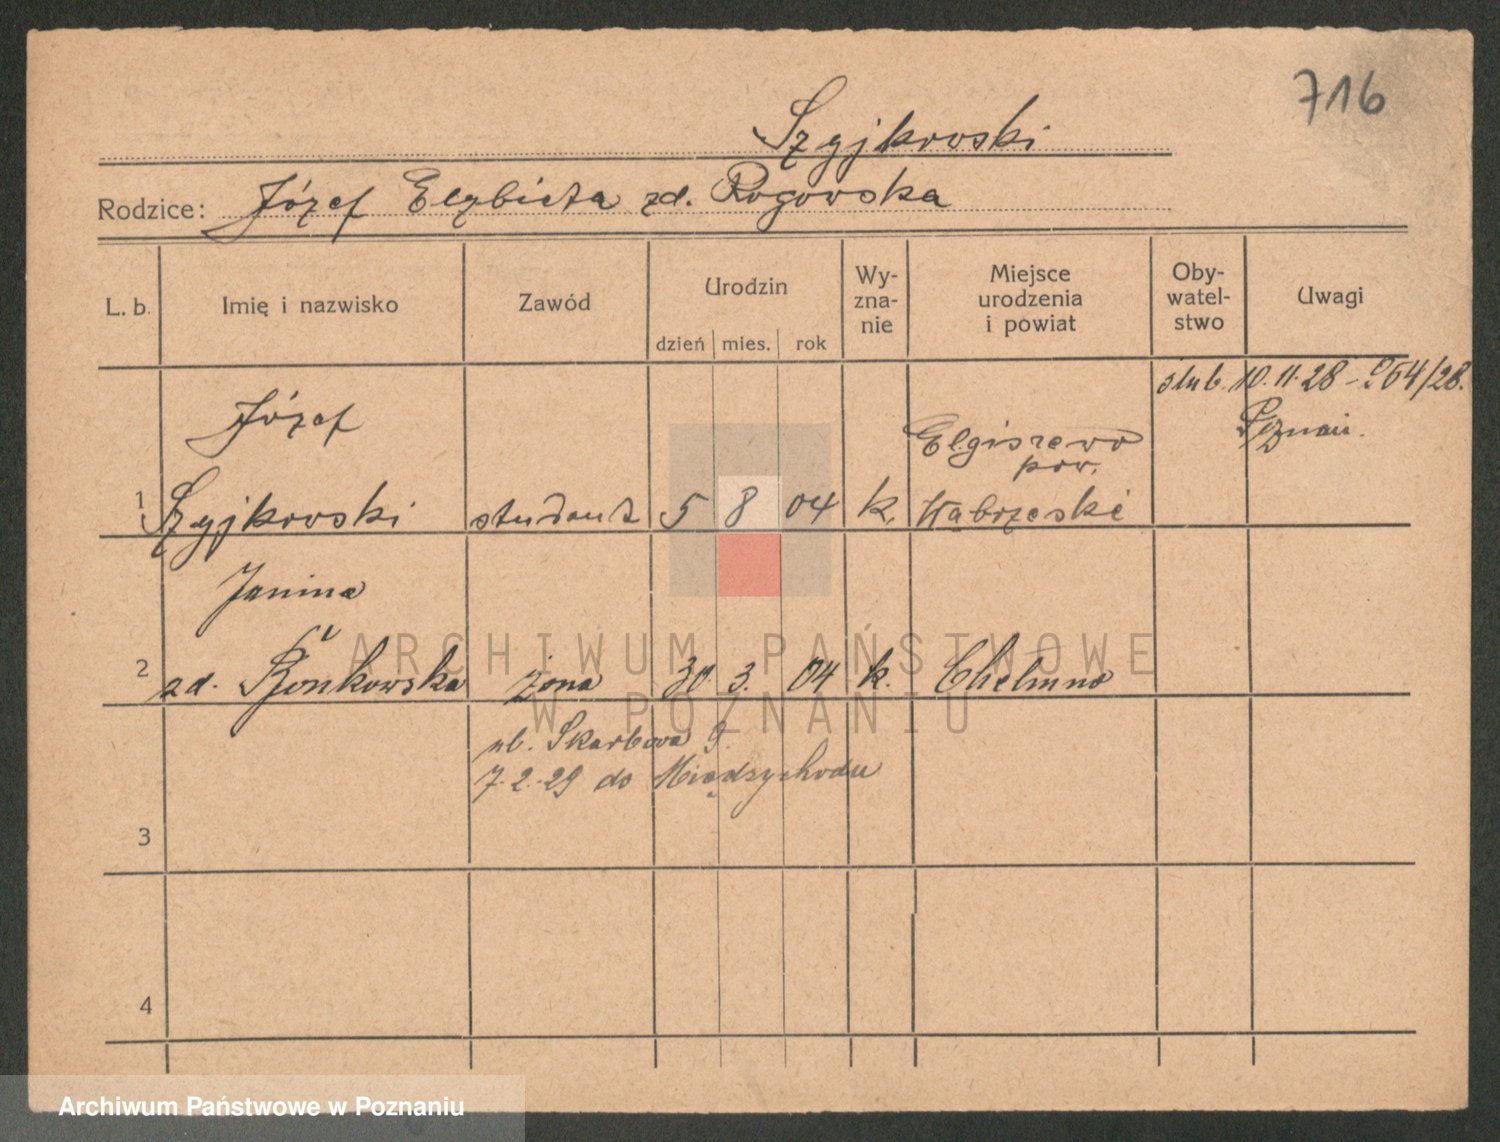 716
Szyjkowski
Rodzice: Józef Elzbieta zd. Rogowska
L. b. Imię i nazwisko Zawód Urodzin dzień mies. rok Wy-zna-nie Miejsce urodzenia i powiat Oby-watel-stwo Uwagi
ślub. 10.11.28 - 964/28.
Poznań.
Józef Elgiszewo
pow.
1 Szyjkowski student 5 8 04 k. Wąbrzeski
Janina
2 zd. żona 30 3. 04 k. Chełmno
ul. Skarbowa 9.
7.2.29 do Międzychodu
3
4
ARCHIWUM PAŃSTWOWE
W POZNANIU
Archiwum Państwowe w Poznaniu